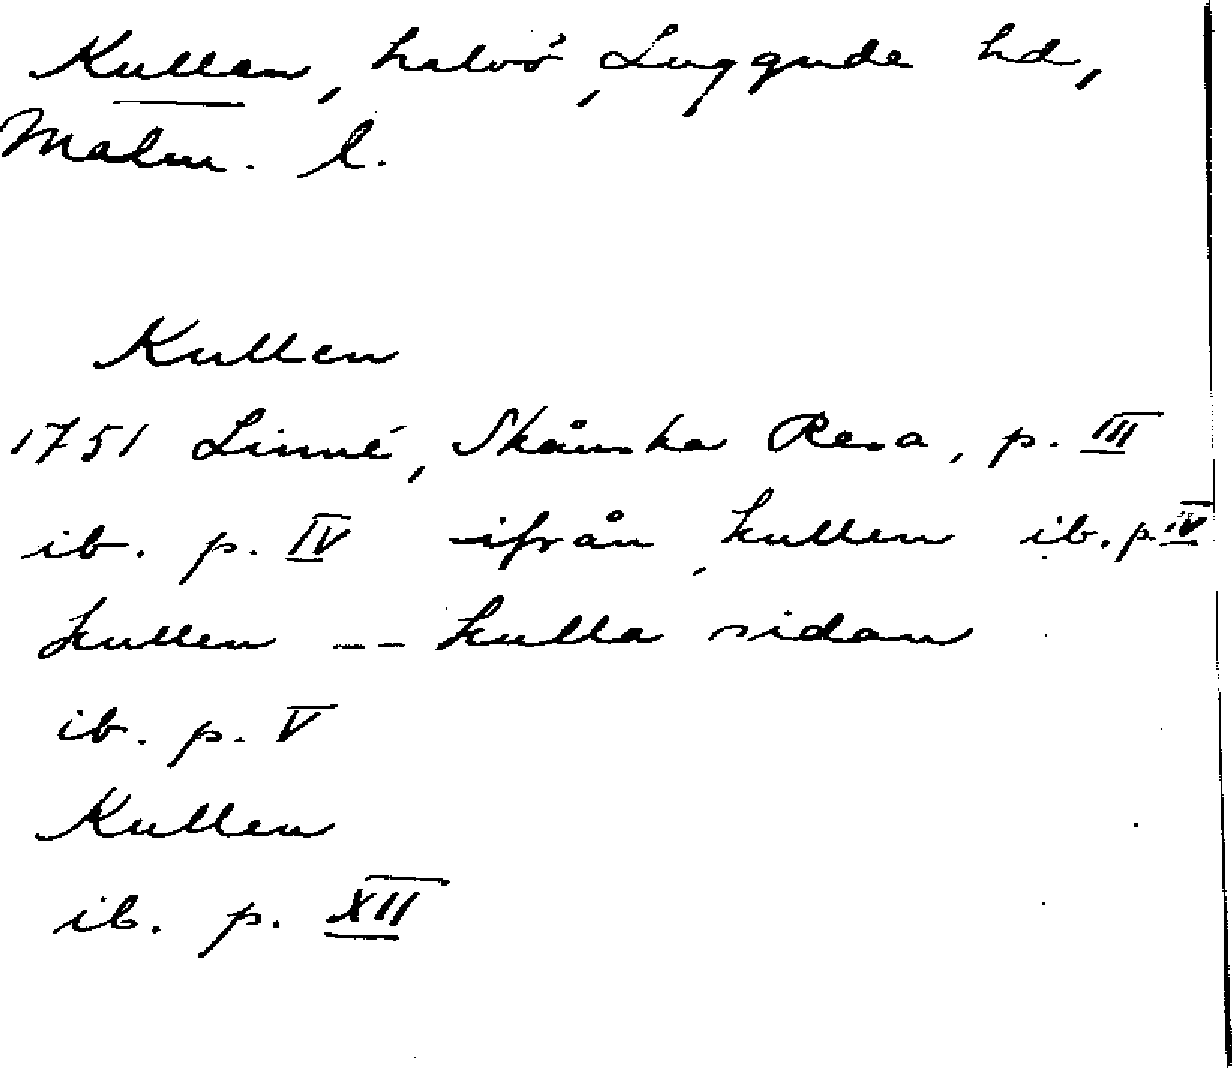 Kullen, halvö, Luggude hd,
Malm. l.
Kullen
1751 Linné, Skånska Resa, p. III
ib. p. IV ifrån kullen ib. p. IV
kullen -- kulla sidan
ib. p. V
Kullen
ib. p. XII